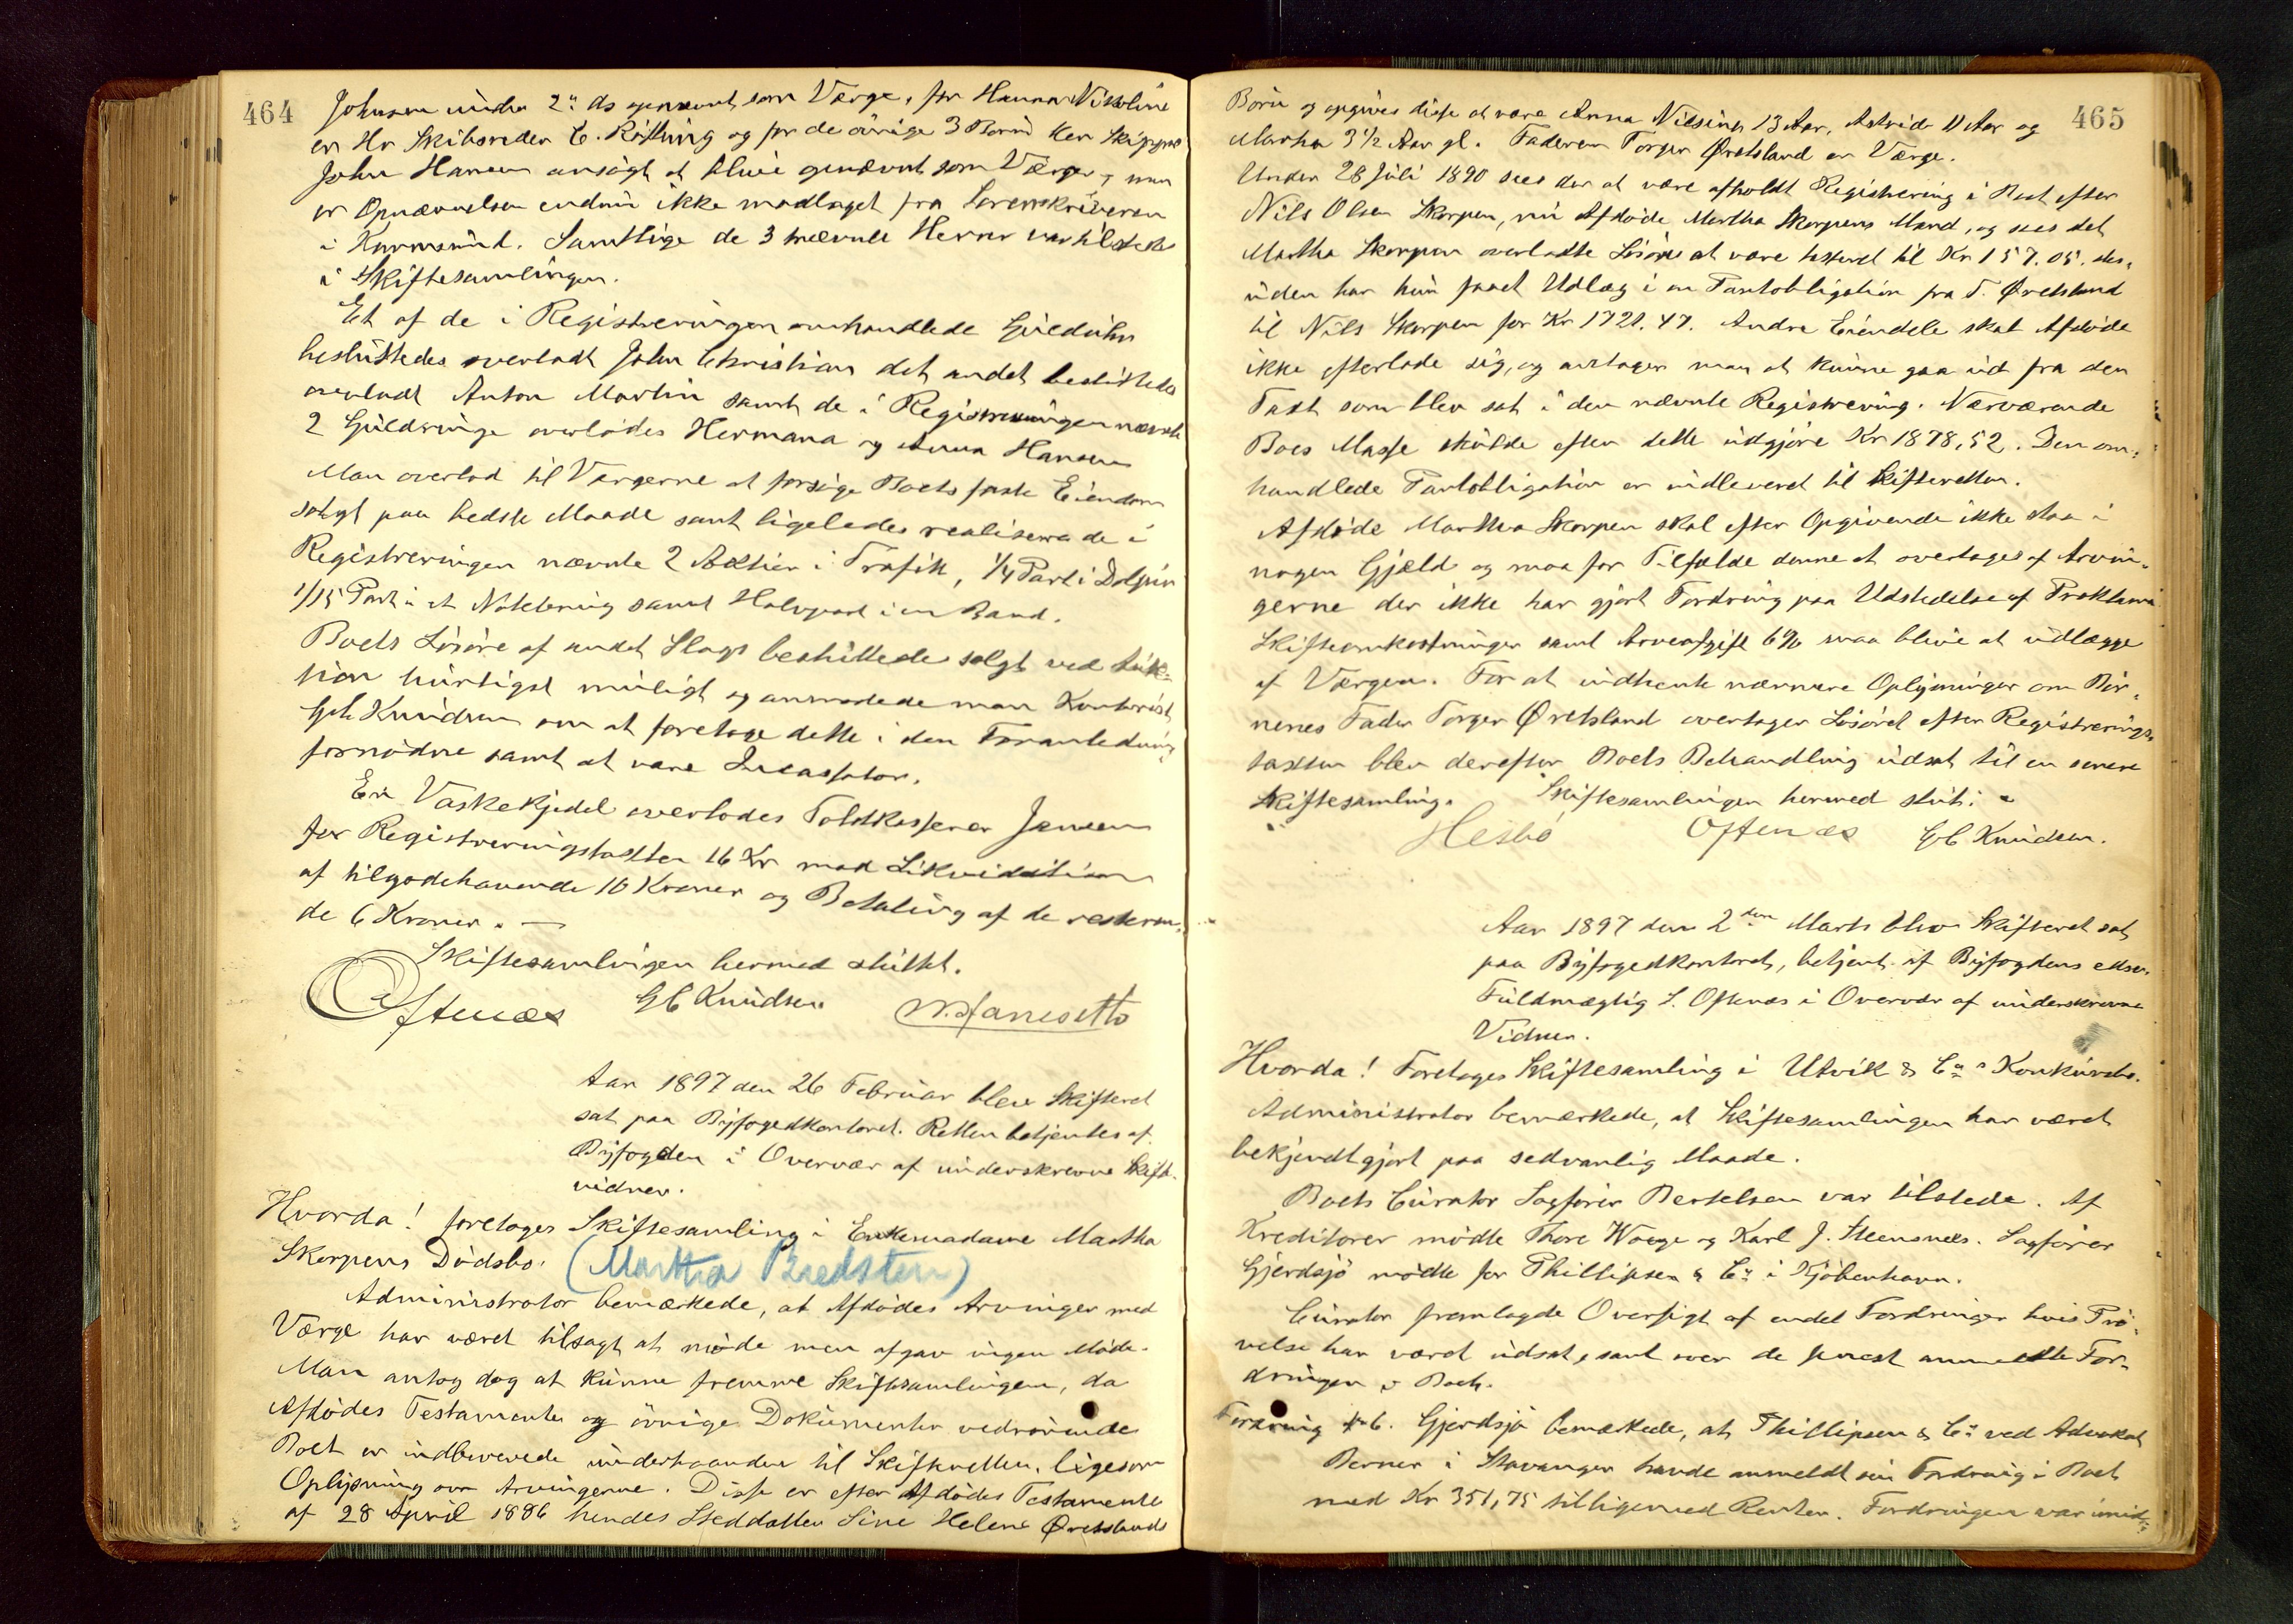 464
Johnsen under 2' ds opnævnt som Værge, for Hanna Nikoline
er Hr Skibsreder C. Røthing og for de øvrige 3 Børn Herr Skipper
John Hansen ansøgt at blive opnævnt som Værger, men
er Opnævnelsen endnu ikke modtaget fra Sorenskriveren
i Karmsund. Samtlige de 3 nævnte Herrer var tilstede
i Skiftesamlingen.
Et af de i Registreringen omhandlede Guldúhr
beslúttedes overladt John Christian det andet beslúttedes
overladt Anton Martin samt de i Registreringen nævnte
2 Gúldringe overlodes Hermana og Anna Hansen
Man overlod til Værgerne at forsøge Boets faste Eiendom
solgt paa bedste Maade samt ligeledes realisere de i
Registreringen nævnte 2 Aktier i Trafik, 1/4 Part i Dolphin
1/15 Part i et Notebrúg samt Halvpart i en Baad.
Boets Løsøre af andet Slags beslúttedes solgt ved Auk-
tion húrtigst múligt og anmodede man Kontorist
G C Knúdsen om at foretage dette i den Foranledning
fornødne samt at være Incassator.
En Vaskekjedel overlodes Toldkasserer Jansen
for Registreringstaxten 16 Kr mod Likvidation
af tilgodehavende 10 Kroner og Betaling af de resteren-
de 6 Kroner. —
Skiftesamlingen hermed slúttet.
Oftenæs G C Knúdsen N. Hanisetto
Aar 1897 den 26 Februar blev Skifteret
sat paa Byfogedkontoret. Retten betjentes af
Byfogden i Overvær af underskrevne Skifte-
vidner.
Hvorda! foretages Skiftesamling i Enkemadame Martha
Skorpens Dødsbo. (Martha Bredsten)
Administrator bemærkede, at Afdødes Arvinger med
Værge har været tilsagt at møde men afgav ingen Møde.
Man antog dog at kúnne fremme Skiftesamlingen, da
Afdødes Testamente og øvrige Dokúmenter vedrørende
Boet er indleverede únderhaanden til Skifteretten, ligesom
Oplysning om Arvingerne. Disse er efter Afdødes Testamente
af 28 April 1886 hendes Steddatter Sine Helene Øretslands
465
Børn og opgives disse at være Anna Nilsine 13 Aar, Astrid 11 Aar og
Martha 3 1/2 Aar gl. Faderen Torger Øretsland er Værge.
Under 28 Júli 1890 sees der at være afholdt Registrering i Boet efter
Nils Olsen Skorpen, nú Afdøde Martha Skorpens Mand, og sees det
Martha Skorpen overladte Løsøre at være taxeret til Kr 157.05. des-
úden har hún faaet Udlæg i en Pantobligation fra T. Øretsland
til Nils Skorpen for Kr 1721.47. Andre Eiendele skal Afdøde
ikke efterlade sig, og antager man at kúnne gaa úd fra den
Taxt som blev sat i den nævnte Registrering. Nærværende
Boes Masse skúlde efter dette údgjøre Kr 1878,52. Den om-
handlede Pantobligation er indleveret til Skifteretten.
Afdøde Martha Skorpen skal efter Opgivende ikke staa i
nogen Gjæld og maa for Tilfælde denne at overtages af Arvin-
gerne der ikke har gjort Fordring paa Udstedelse af Proklama
Skifteomkostninger samt Arveafgift 6% maa blive at údlægge
af Værgen. For at indhente nærmere Oplysninger om Bør-
nenes Fader Torger Øretsland overtager Løsøret efter Registrerings-
taxten blev derefter Boets Behandling údsat til en senere
Skiftesamling. Skiftesamlingen hermed slút.
Hesbø Oftenæs G C Knúdsen.
Aar 1897 den 2den Marts blev Skifteret sat
paa Byfogedkontoret, betjent af Byfogdens edsv.
Fúldmægtig S. Oftenæs i Overvær af únderskrevne
Vidner.
Hvorda! Foretages Skiftesamling i Utvik & Co's Konkúrsbo.
Administrator bemærkede, at Skiftesamlingen har været
bekjendtgjort paa sedvanlig Maade.
Boets Cúrator Sagfører Bertelsen var tilstede. Af
Kreditorer mødte Thore Waage og Karl J. Steensnes. Sagfører
Gjerdsjø mødte for Phillipsen & Co i Kjøbenhavn.
Cúrator fremlagde Oversigt af endel Fordringer hvis Prø-
velse har været údsat, samt over de senest anmeldte For-
dringer i Boet.
Fordring № 6. Gjerdsjø bemærkede, at Phillipsen & Co ved Advokat
Berner i Stavanger havde anmeldt sin Fordring i Boet
med Kr 351,75 tilligemed Renter. Fordringen var imid-